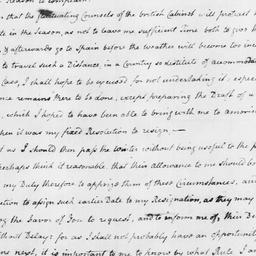 that the fluctuating Counsels of the British Cabinet will protract
te in the Season, as not to leave me sufficient time both to give
& afterwards go to Spain before the weather will become too inc
to travel such a Distance, in a Country so destitute of accommoda
Case, I shall hope to be excused for not undertaking it; espec
nce remains there to be done, except preparing the Draft of a
, which I hoped to have been able to bring with me to America
hen it was my fixed Resolution to resign.—
t as I should then pass the winter without being useful to the p
perhaps think it reasonable that their allowance to me should be
my Duty therefore to apprize them of these Circumstances, an
ction to assign such earlier Date to my Resignation, as they may
ng the Favor of you to request, and to inform me of, their De
ithout Delay: for as I shall not probably have an opportunity
ns next, it is important to me to know by what Rule I am